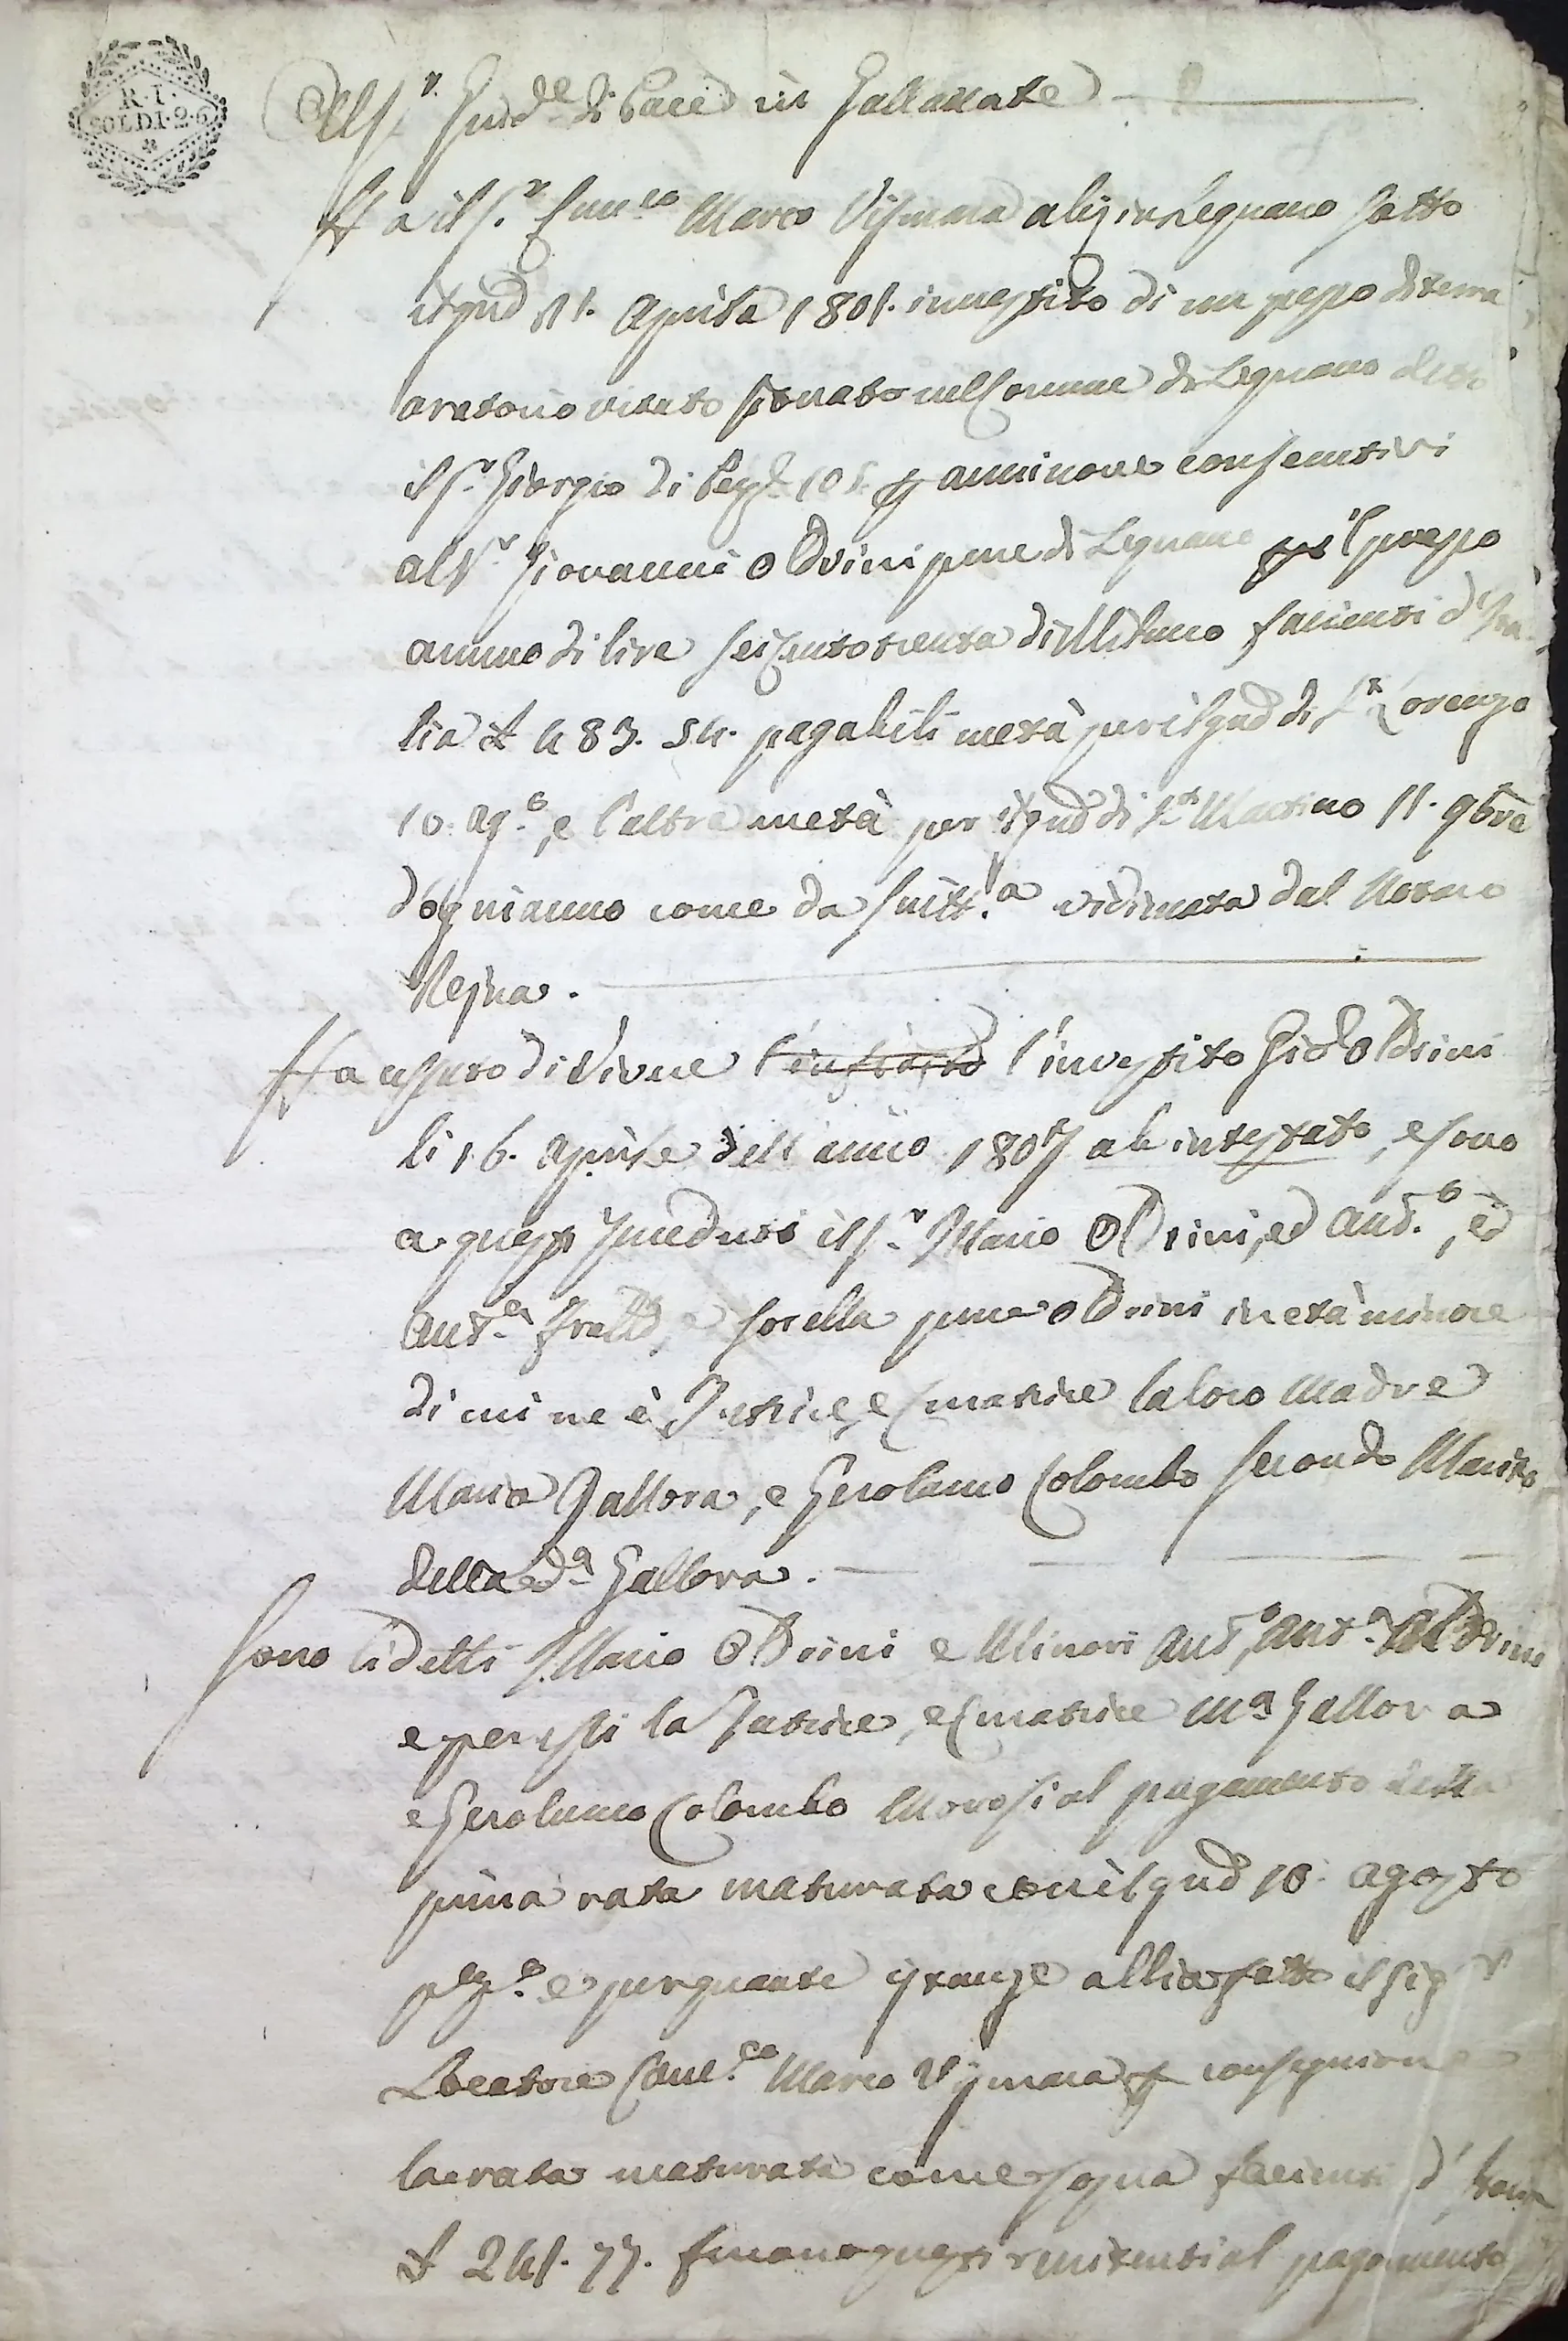 R. I.
SOLDI. 2. 6
Al S.r Giud.e di Pace in Gallarate
Ha il S.r Can.co Marco Vismara abit. in Legnano sotto
il gno 11. Aprile 1801. investito di un pezzo di terra
aratorio vitato situato nel Comune di Legnano detto
il S. Giorgio di Pert. 105. per anni nove consecutivi
al S.r Giovanni Oldrini pure di Legnano per il prezzo
annuo di lire seicentotrenta di Milano facienti d'Ita-
lia £ 483. 54. pagabili metà per il gno di S.n Lorenzo
10. Ag.o, e l'altra metà per il gno di S.n Martino 11. 9bre
d'ogni anno come da scritt.a vidimata dal Notaro
Resna.
Ha cessato di vivere l'investito Gio. Oldrini
li 16. Aprile dell'anno 1807 ab intestato, e sono
a questi succeduti il S.r Mario Oldrini, ed Ant.o, ed
Ant.a Fratelli, e sorella pure Oldrini in età minore
di cui ne è Tutrice, e Curatrice la loro Madre
Maria Gallora, e Gerolamo Colombo secondo Marito
della d.a Gallora.
Sono li detti Mario Oldrini e Minori Ant.o, Ant.a Oldrini
e per essi la Tutrice, e Curatrice M.a Gallora
e Gerolamo Colombo morosi al pagamento della
prima rata maturata con il gno 10. Agosto
e per quante istanze abbia fatto il Sig.r
Locatore Can.co Marco Vismara per conseguire
la rata maturata come sopra facienti d'Italia
£ 241. 77. furono questi renitenti al pagamento